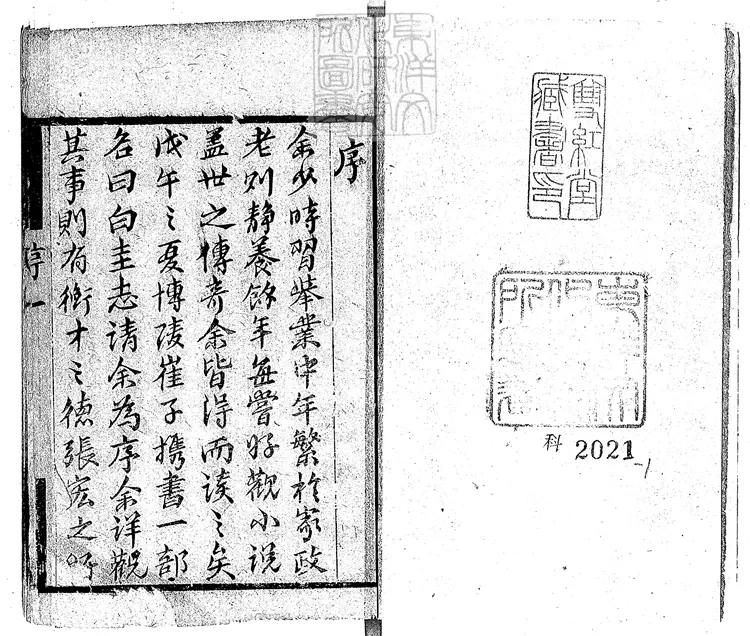 雙紅堂
藏書印
科 2021
-1
序
余少時習舉業中年繁於家政
老则靜養餘年每嘗好觀小说
盖世之傳奇余皆得而读之矣
戊午之夏博陵崔子携書一部
名曰白圭志请余為序余详觀
其事則有衡才之德張宏之
序一